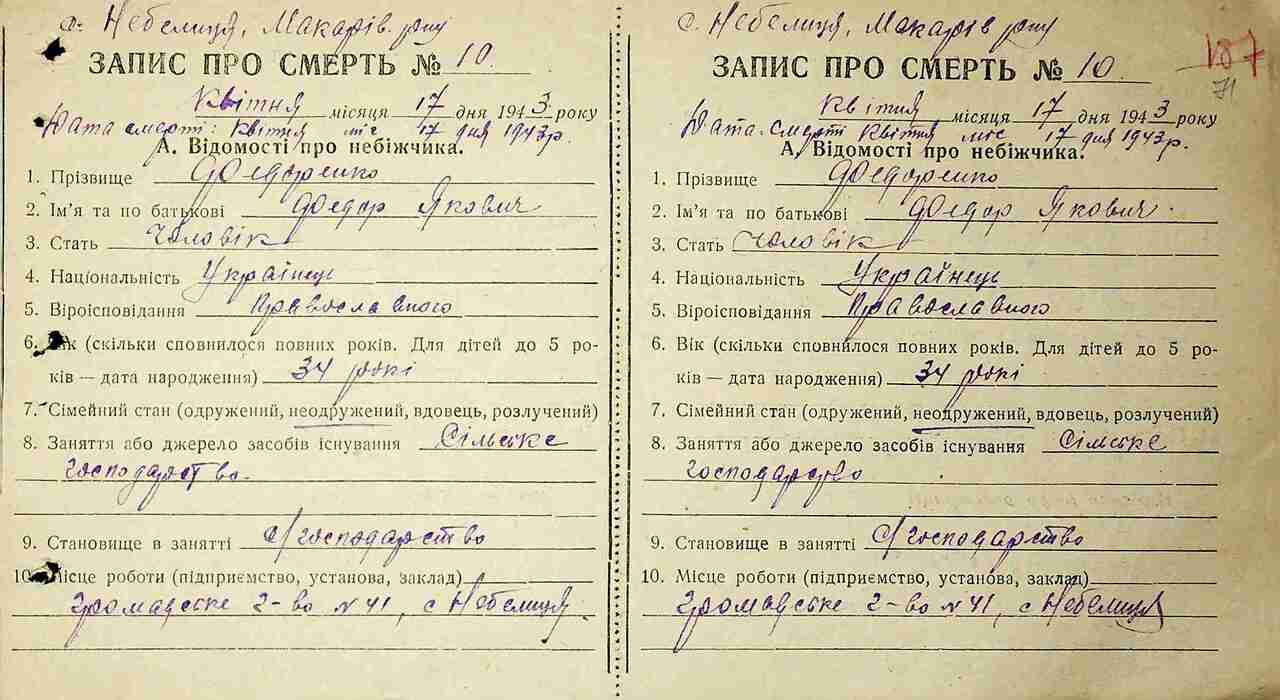 с. Небелиця, Макарів. р-ну
ЗАПИС ПРО СМЕРТЬ № 10.
Квітня місяця 17 дня 1943 року
Дата смерті: Квітня міс 17 дня 1943р.
А. Відомості про небіжчика.
1. Прізвище Федоренко
2. Ім'я та по батькові Федор Якович
3. Стать Чоловік
4. Національність Українець
5. Віроісповідання Православного
6. Вік (скільки сповнилося повних років. Для дітей до 5 ро-
ків — дата народження) 34 роки
7. Сімейний стан (одружений, неодружений, вдовець, розлучений)
8. Заняття або джерело засобів існування Сільське
господарство.
9. Становище в занятті С/господарство
10. Місце роботи (підприємство, установа, заклад)
Громадське г-во №41, с Небелиця.
с. Небелиця, Макарів р-ну
ЗАПИС ПРО СМЕРТЬ № 10.
187
71
Квітня місяця 17 дня 1943 року
Дата смерті Квітня міс 17 дня 1943р.
А. Відомості про небіжчика.
1. Прізвище Федоренко
2. Ім'я та по батькові Федор Якович.
3. Стать Чоловік
4. Національність Українець
5. Віроісповідання Православного
6. Вік (скільки сповнилося повних років. Для дітей до 5 ро-
ків — дата народження) 34 роки
7. Сімейний стан (одружений, неодружений, вдовець, розлучений)
8. Заняття або джерело засобів існування Сільське
господарство
9. Становище в занятті С/господарство
10. Місце роботи (підприємство, установа, заклад)
Громадське г-во №41, с Небелиця